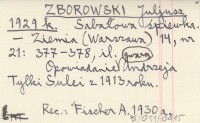 ZBOROWSKI Juljusz
1929 k. Sabałowa śpiewka.
— Ziemia (Warszawa) 14, nr
21: 377-378, il. gwara
Opowiadanie Andrzeja
Tylki Sulei z 1913 roku.
Rec.: Fischer A. 1930 a.